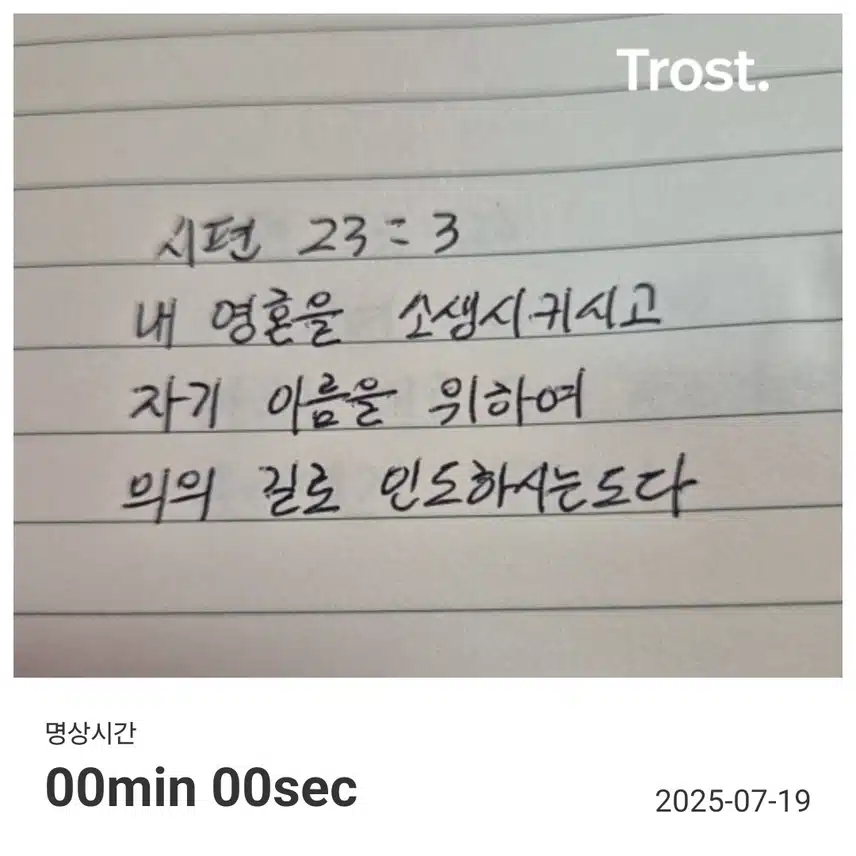 Trost.
시편 23:3
내 영혼을 소생시귀시고
자기 이름을 위하여
의의 길로 인도하시는도다
명상시간
00min 00sec
2025-07-19